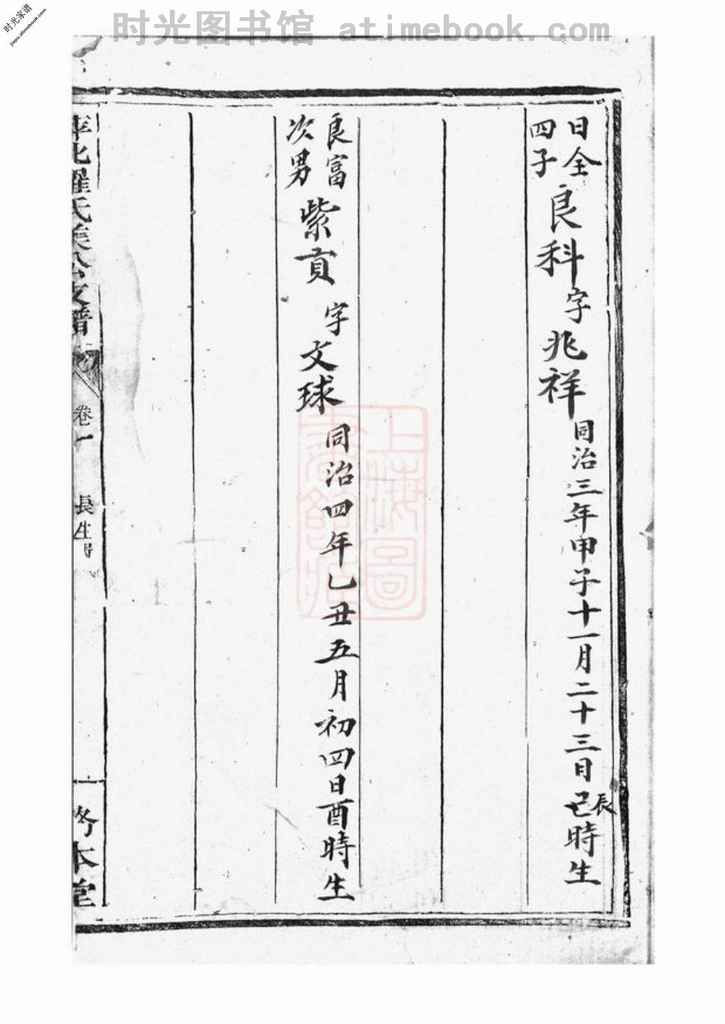 时光图书馆 atimebook.com
时光家谱
日全
四子
良科字兆祥同治三年甲子十一月二十三日巳時生
辰
良富
次男
紫貢字文球同治四年乙丑五月初四日酉時生
羅氏美公支譜
卷一
長生
本堂